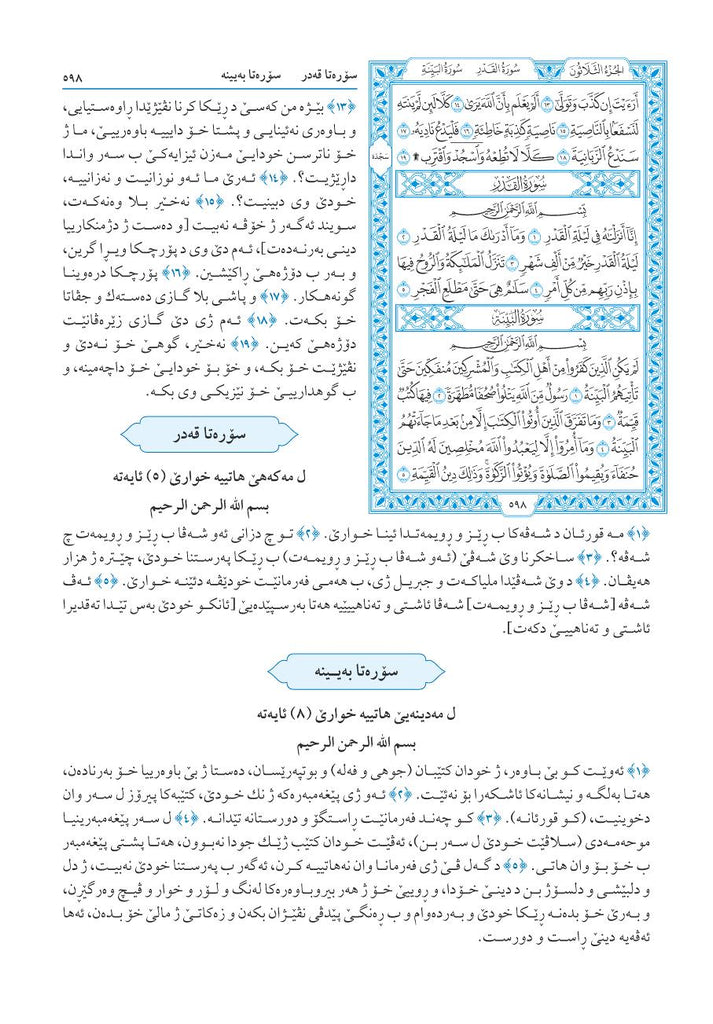 سۆرەتا قەدر سۆرەتا بەیینە ٥٩٨
الجزء الثلاثون سورة القدر سورة البينة
أَرَءَيْتَ إِن كَذَّبَ وَتَوَلَّىٰٓ ١٣ أَلَمْ يَعْلَم بِأَنَّ ٱللَّهَ يَرَىٰ ١٤ كَلَّا لَئِن لَّمْ يَنتَهِ
لَنَسْفَعًۢا بِٱلنَّاصِيَةِ ١٥ نَاصِيَةٍ كَٰذِبَةٍ خَاطِئَةٍ ١٦ فَلْيَدْعُ نَادِيَهُۥ ١٧
سَنَدْعُ ٱلزَّبَانِيَةَ ١٨ كَلَّا لَا تُطِعْهُ وَٱسْجُدْ وَٱقْتَرِب ۩ ١٩
سجدة
سُورَةُ القَدْرِ
بِسْمِ ٱللَّهِ ٱلرَّحْمَٰنِ ٱلرَّحِيمِ
إِنَّآ أَنزَلْنَٰهُ فِى لَيْلَةِ ٱلْقَدْرِ ١ وَمَآ أَدْرَىٰكَ مَا لَيْلَةُ ٱلْقَدْرِ ٢
لَيْلَةُ ٱلْقَدْرِ خَيْرٌ مِّنْ أَلْفِ شَهْرٍ ٣ تَنَزَّلُ ٱلْمَلَٰٓئِكَةُ وَٱلرُّوحُ فِيهَا
بِإِذْنِ رَبِّهِم مِّن كُلِّ أَمْرٍ ٤ سَلَٰمٌ هِىَ حَتَّىٰ مَطْلَعِ ٱلْفَجْرِ ٥
سُورَةُ البَيِّنَةِ
بِسْمِ ٱللَّهِ ٱلرَّحْمَٰنِ ٱلرَّحِيمِ
لَمْ يَكُنِ ٱلَّذِينَ كَفَرُوا۟ مِنْ أَهْلِ ٱلْكِتَٰبِ وَٱلْمُشْرِكِينَ مُنفَكِّينَ حَتَّىٰ
تَأْتِيَهُمُ ٱلْبَيِّنَةُ ١ رَسُولٌ مِّنَ ٱللَّهِ يَتْلُوا۟ صُحُفًا مُّطَهَّرَةً ٢ فِيهَا كُتُبٌ
قَيِّمَةٌ ٣ وَمَا تَفَرَّقَ ٱلَّذِينَ أُوتُوا۟ ٱلْكِتَٰبَ إِلَّا مِنۢ بَعْدِ مَا جَآءَتْهُمُ
ٱلْبَيِّنَةُ ٤ وَمَآ أُمِرُوٓا۟ إِلَّا لِيَعْبُدُوا۟ ٱللَّهَ مُخْلِصِينَ لَهُ ٱلدِّينَ
حُنَفَآءَ وَيُقِيمُوا۟ ٱلصَّلَوٰةَ وَيُؤْتُوا۟ ٱلزَّكَوٰةَ ۚ وَذَٰلِكَ دِينُ ٱلْقَيِّمَةِ ٥
٥٩٨
﴿١٣﴾ بێژە من کەسێ د ڕێکا کرنا نڤێژێدا ڕاوەستیایی،
و باوەری نەئینایی و پشتا خۆ داییە باوەرییێ، ما ژ
خۆ ناترسن خودایێ مەزن ئیزایەکێ ب سەر واندا
داڕێژیت؟. ﴿١٤﴾ ئەرێ ما ئەو نوزانیت و نەزانییە،
خودێ وی دبینیت؟. ﴿١٥﴾ نەخێر بلا وەنەکەت،
سویند ئەگەر ژ خۆڤە نەبیت [و دەست ژ دژمنکارییا
دینی بەرنەدەت]، ئەم دێ وی د پۆرچکا ویڕا گرین،
و بەر ب دۆژەهێ ڕاکێشین. ﴿١٦﴾ پۆرچکا درەوینا
گونەهکار. ﴿١٧﴾ و پاشی بلا گازی دەستەك و جڤاتا
خۆ بکەت. ﴿١٨﴾ ئەم ژی دێ گازی زێرەڤانێت
دۆژەهێ کەین. ﴿١٩﴾ نەخێر، گوهێ خۆ نەدێ و
نڤێژێت خۆ بکە، و خۆ بۆ خودایێ خۆ داچەمینە، و
ب گوهدارییێ خۆ نێزیکی وی بکە.
سۆرەتا قەدر
ل مەکەهێ هاتییە خوارێ (٥) ئایەتە
بسم الله الرحمن الرحیم
﴿١﴾ مە قورئان د شەڤەکا ب ڕێز و ڕویمەتدا ئینا خوارێ. ﴿٢﴾ تو چ دزانی ئەو شەڤا ب ڕێز و ڕویمەت چ
شەڤە؟. ﴿٣﴾ ساخکرنا وێ شەڤێ (ئەو شەڤا ب ڕێز و ڕویمەت) ب ڕێکا پەرستنا خودێ، چێترە ژ هزار
هەیڤان. ﴿٤﴾ د وێ شەڤێدا ملیاکەت و جبریل ژی، ب هەمی فەرمانێت خودێڤە دئێنە خوارێ. ﴿٥﴾ ئەڤ
شەڤە [شەڤا ب ڕێز و ڕویمەت] شەڤا ئاشتی و تەناهییێیە هەتا بەرسپێدەیێ [ئانکو خودێ بەس تێدا تەقدیرا
ئاشتی و تەناهییێ دکەت].
سۆرەتا بەیینە
ل مەدینەیێ هاتییە خوارێ (٨) ئایەتە
بسم الله الرحمن الرحیم
﴿١﴾ ئەوێت کو بێ باوەر، ژ خودان کتێبان (جوهی و فەلە) و بوتپەرێسان، دەستا ژ بێ باوەرییا خۆ بەرنادەن،
هەتا بەلگە و نیشانەکا ئاشکەرا بۆ نەئێت. ﴿٢﴾ ئەو ژی پێغەمبەرەکە ژ نك خودێ، کتێبەکا پیرۆز ل سەر وان
دخوینیت، (کو قورئانە). ﴿٣﴾ کو چەند فەرمانێت ڕاستگۆ و دورستانە تێدانە. ﴿٤﴾ ل سەر پێغەمبەرینیا
موحەمەدی (سلاڤێت خودێ ل سەر بن)، ئەڤێت خودان کتێب ژێك جودا نەبوون، هەتا پشتی پێغەمبەر
ب خۆ بۆ وان هاتی. ﴿٥﴾ د گەل ڤێ ژی فەرمانا وان نەهاتییە کرن، ئەگەر ب پەرستنا خودێ نەبیت، ژ دل
و دلبێشی و دلسۆژ بن د دینێ خۆدا، و ڕوییێ خۆ ژ هەر بیروباوەرەکا لەنگ و لۆر و خوار و ڤیچ وەرگێڕن،
و بەرێ خۆ بدەنە ڕێکا خودێ و بەردەوام و ب ڕەنگێ پێدڤی نڤێژان بکەن و زەکاتێ ژ مالێ خۆ بدەن، ئەها
ئەڤەیە دینێ ڕاست و دورست.